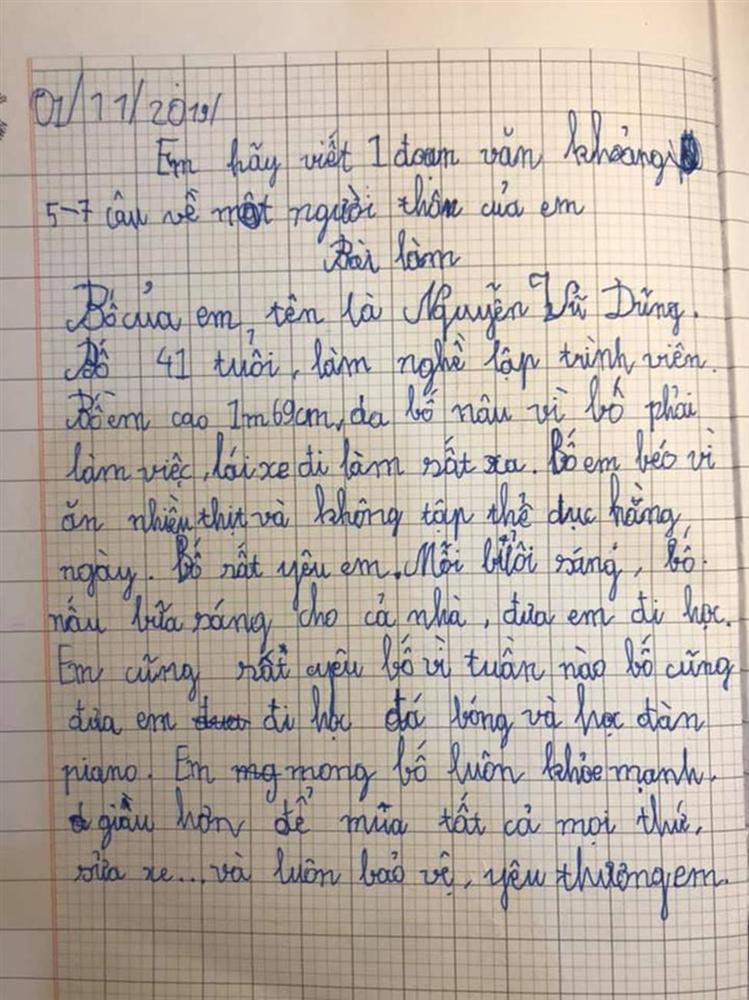 01/11/2019/
Em hãy viết 1 đoạn văn khoảng
5-7 câu về một người thân của em
Bài làm
Bố của em, tên là Nguyễn Vũ Dũng.
Bố 41 tuổi, làm nghề lập trình viên.
Bố em cao 1m69cm, da bố nâu vì bố phải
làm việc, lái xe đi làm rất xa. Bố em béo vì
ăn nhiều thịt và không tập thể dục hằng
ngày. Bố rất yêu em. Mỗi buổi sáng, bố
nấu bữa sáng cho cả nhà, đưa em đi học.
Em cũng rất yêu bố vì tuần nào bố cũng
đưa em đi học đá bóng và học đàn
piano. Em mong bố luôn khỏe mạnh,
giầu hơn để mua tất cả mọi thứ,
sửa xe... và luôn bảo vệ, yêu thương em.